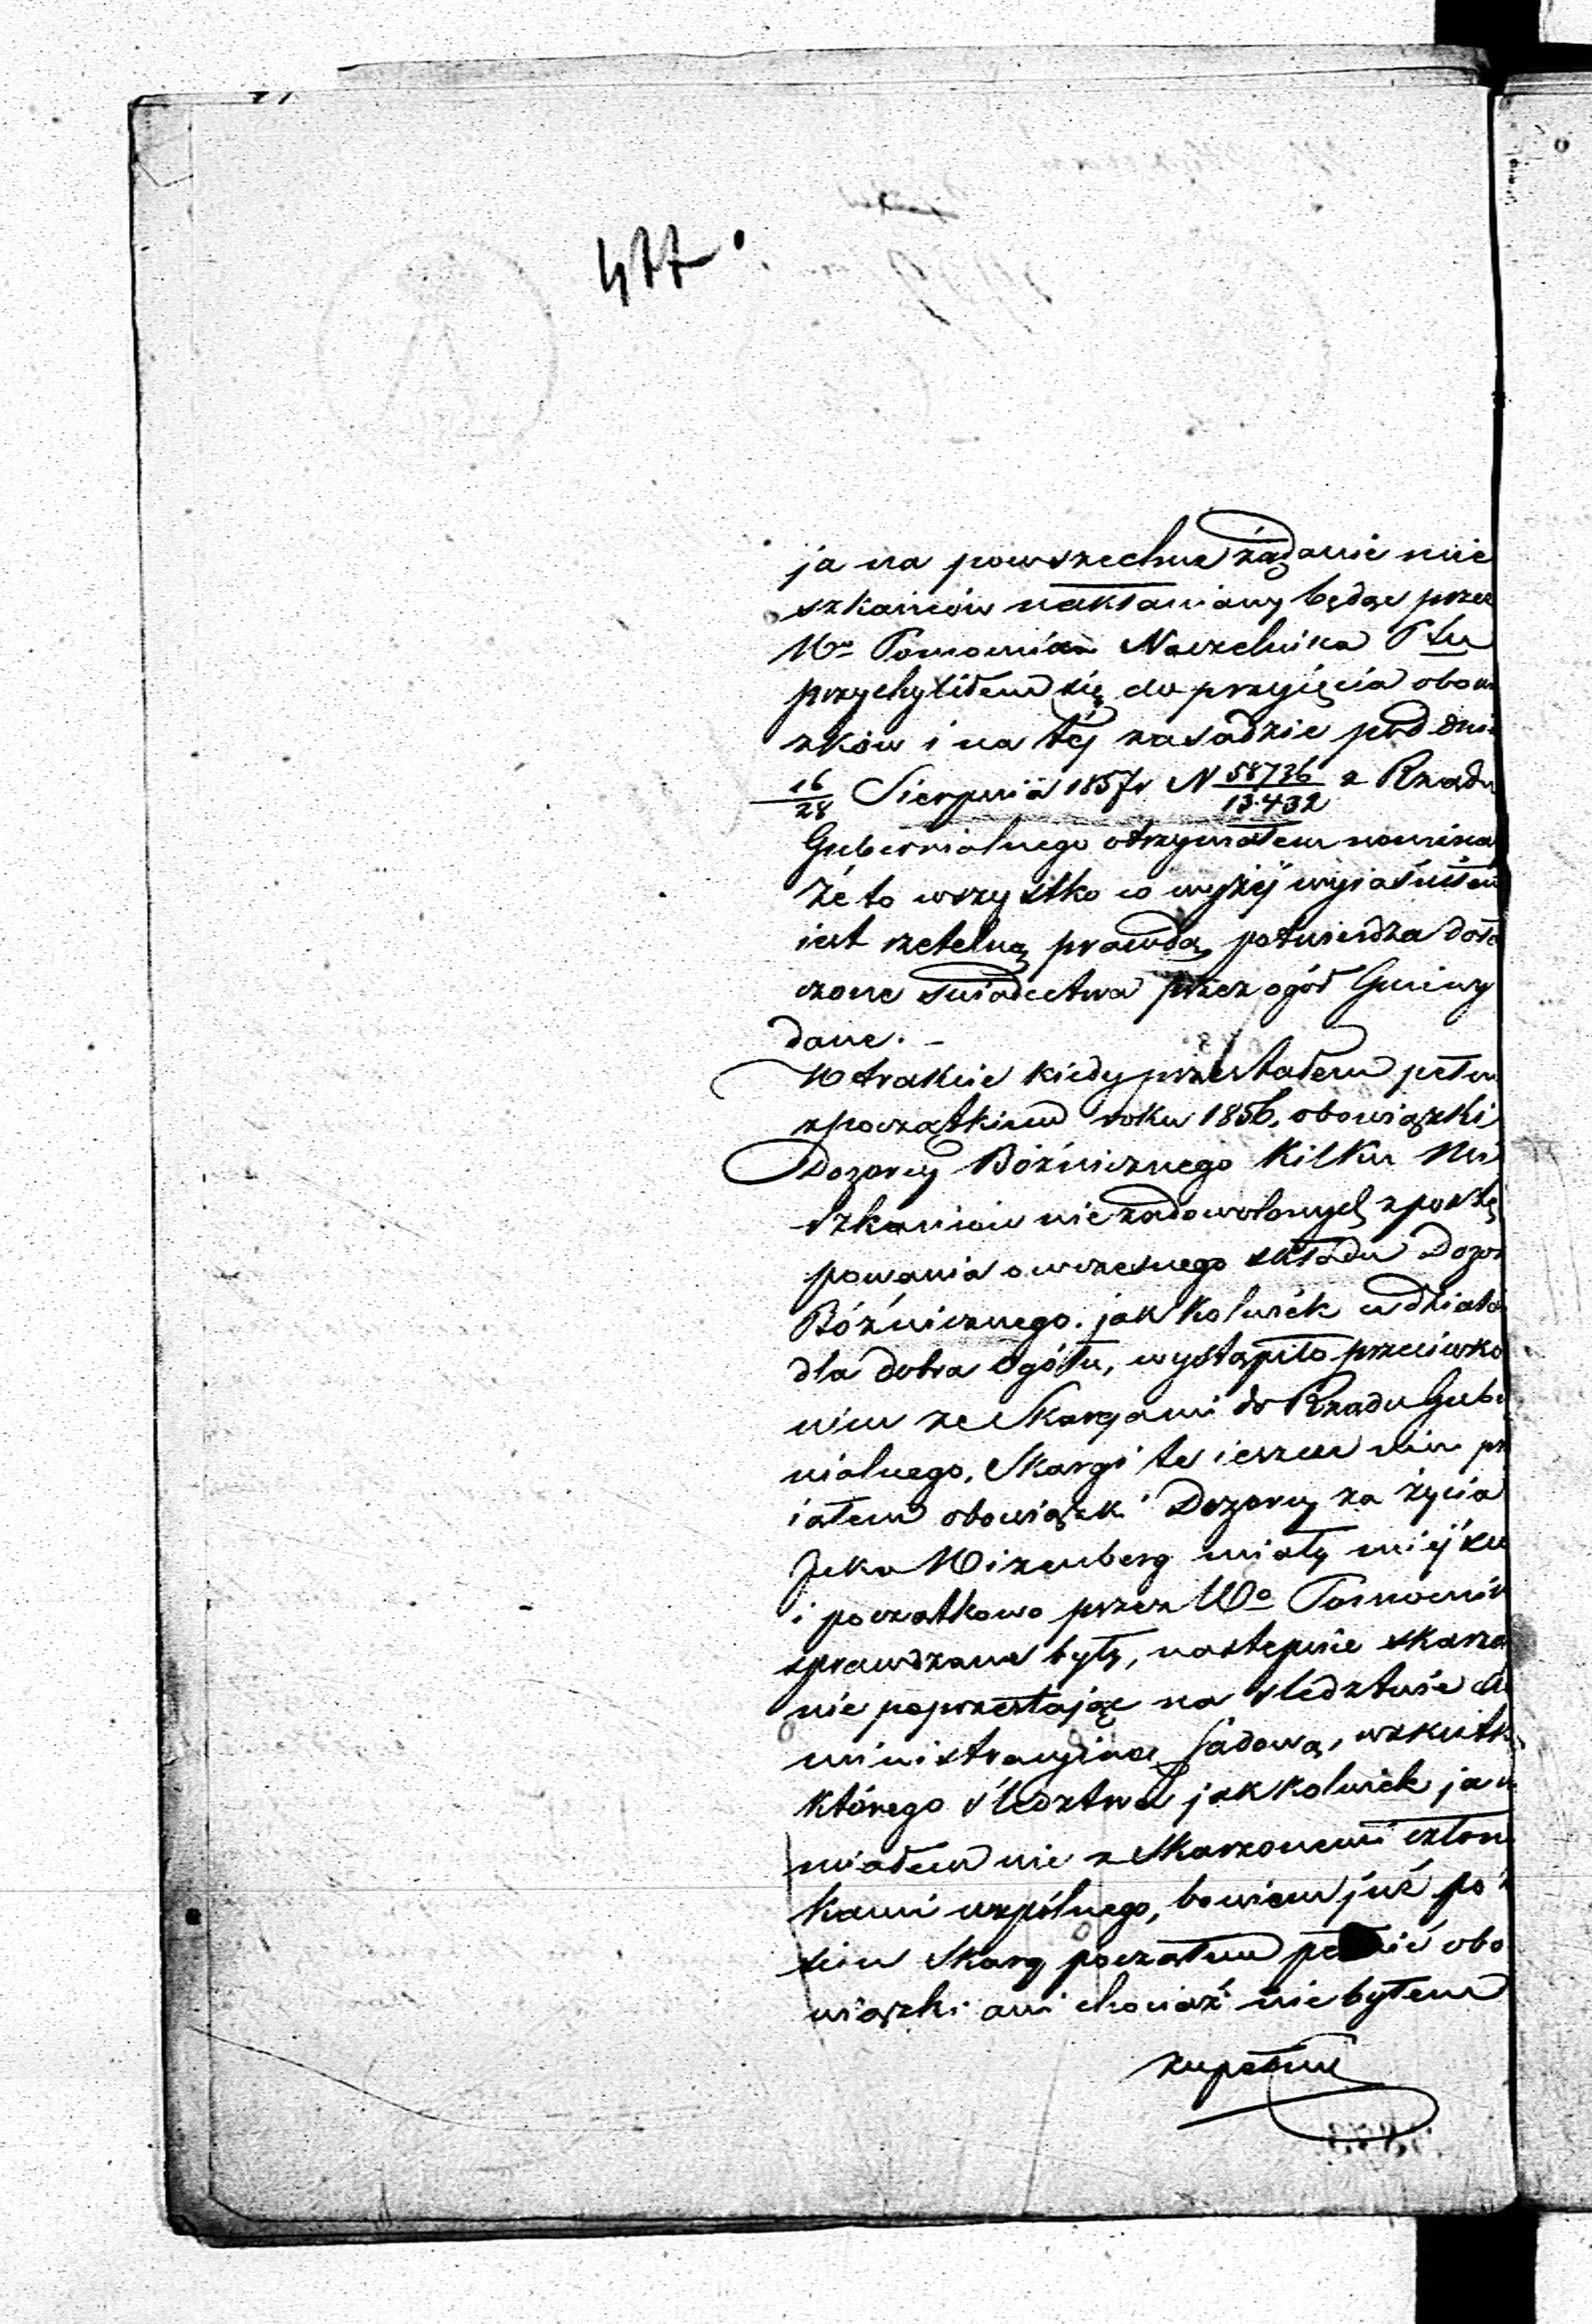 477.
ja na powszechne żądanie mie
szkańców nakłaniany będąc przez
Wo Pomocnika Naczelnika Ptu
przychyliłem się do przyięcia obow
zków i na téj zasadzie pod dni
16/28 Sierpnia 1857r N 58736/13.432 z Rządu
Gubernialnego otrzymałem nomina
Że to wszystko co wyżéj wyiaśniłem
iest rzetelną prawdą, potwierdza dołą
czone świadectwa przez ogół Gminy
dane. -
W trakcie kiedy przestałem pełn
z początkiem roku 1856, obowiązki
Dozorcy Bóźnicznego kilku Mie
szkańców niezadowolonych z postę
powania owczesnego składu Dozor
Bóźnicznego. jakkolwiek działa
dla dobra Ogółu, wystąpiło przeciwko
nim ze Skargami do Rządu Guber
nialnego, Skargi te ieszcze nim prz
iąłem obowiązki Dozorcy za życia
Jcka Wizenberg miały miéjsce
i początkowo przez Wo Pomocnik
sprawdzane były, nastepnie skarżą
nie poprzestając na śledztwie ad
ministracyjne Sądową, wskutk
którego śledztwa jakkolwiek ja n
miałem nic z Skarżonemi człon
kami wspólnego, bowiem już po
Skarg począłem pełnić obo
wiązki ani chociaż nie byłem
zupełnie